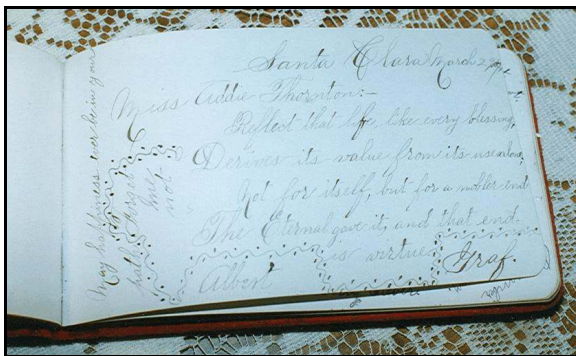 Santa Clara March 2
Miss Addie Thornton:-
Reflect that life like every blessing,
Derives its value from its use alone,
Not for itself, but for a nobler end
The Eternal gave it, and that end
is virtue
Albert Graf.
May happiness ever be in your
path
Forget
me
not